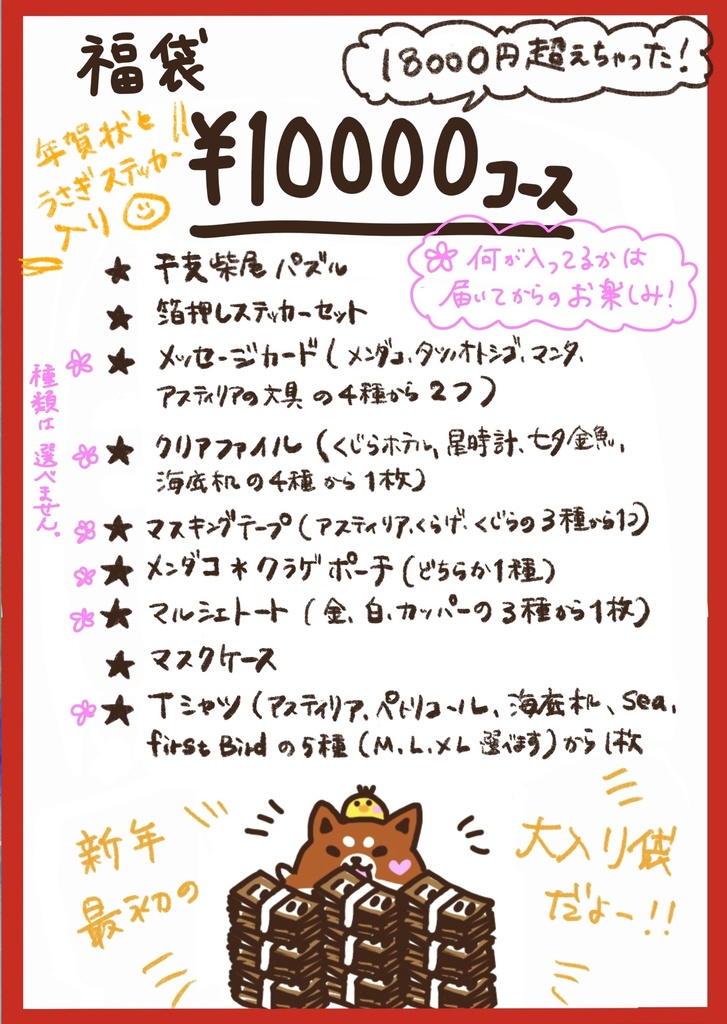 福袋
18000円超えちゃった!
年賀状と
うさぎステッカー
入り
¥10000コース
何が入ってるかは
届いてからのお楽しみ!
★ 干支柴尾パズル
★ 箔押しステッカーセット
★ メッセージカード(メンダコ、タツノオトシゴ、マンタ、
アスティリアの文具の4種から2つ)
種類は選べません。
★ クリアファイル(くじらホテル、星時計、七夕金魚、
海底机の4種から1枚)
★ マスキングテープ(アスティリア、くらげ、くじらの3種から1コ)
★ メンダコ*クラゲポーチ(どちらか1種)
★ マルシェトート(金、白、カッパーの3種から1枚)
★ マスクケース
★ Tシャツ(アスティリア、ペトリコール、海底机、Sea、
first Birdの5種(M、L、XL選べます)から1枚
新年
最初の
大入り袋
だよー!!